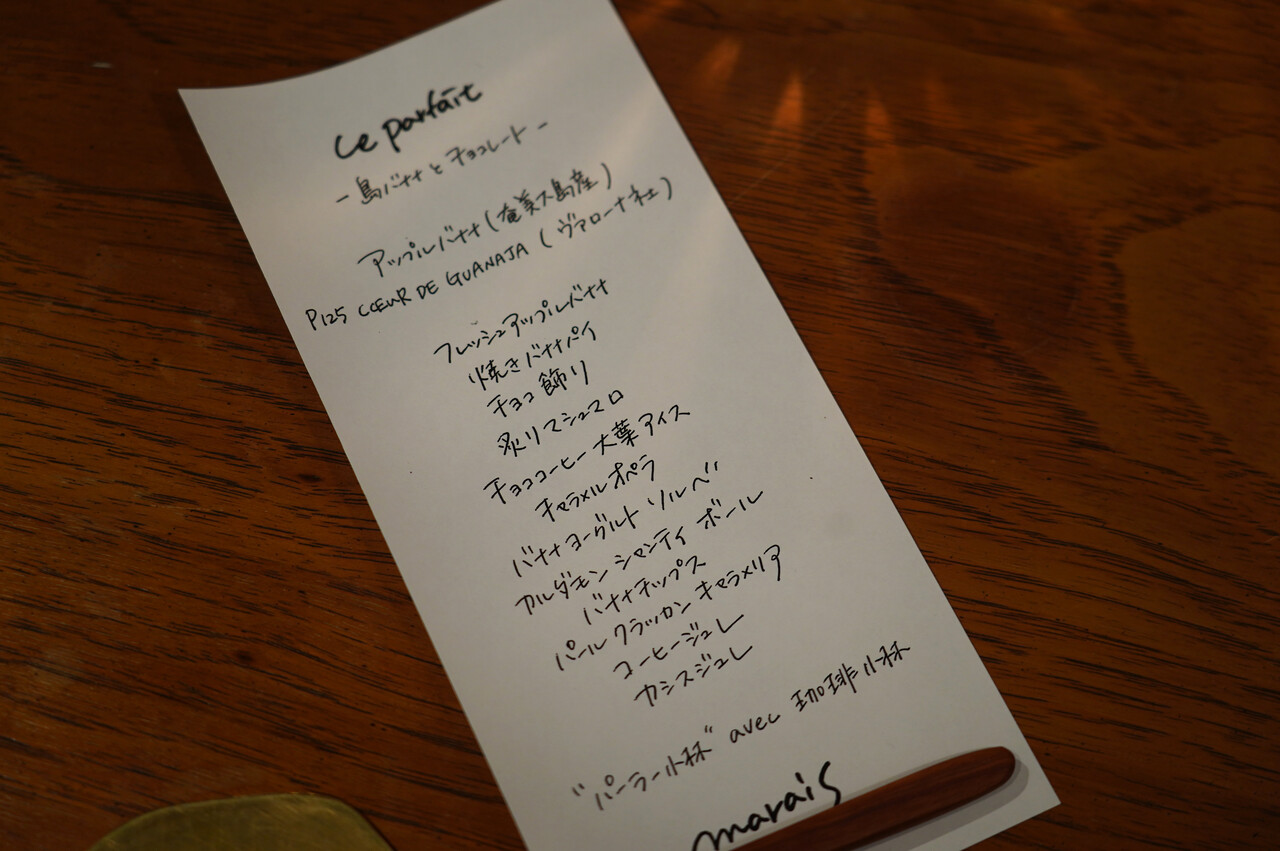 Le parfait
- 島バナナとチョコレート -
アップルバナナ(奄美大島産)
P125 CŒUR DE GUANAJA (ヴァローナ社)
フレッシュアップルバナナ
焼きバナナパイ
チョコ飾り
炙りマシュマロ
チョココーヒー大葉アイス
キャラメルオペラ
バナナヨーグルト ソルベ
カルダモン シャンティ ボール
バナナチップス
パールクラッカン キャラメリア
コーヒージュレ
カシスジュレ
"パーラー小林" avec 珈琲小林
marais